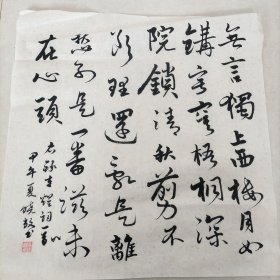 無言獨上西樓月如
鉤寂寞梧桐深
院鎖清秋剪不
斷理還亂是離
愁別是一番滋味
在心頭
李煜詞
甲午夏